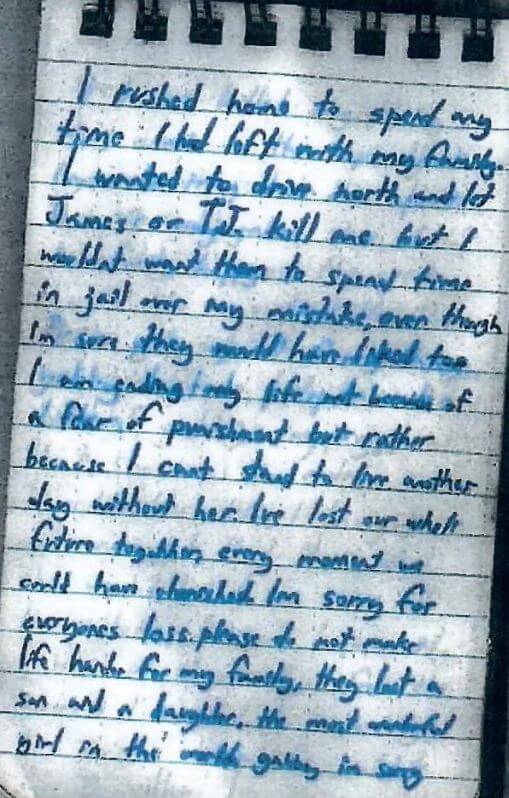 I rushed home to spend any
time I had left with my family.
I wanted to drive north and let
James or T.J. kill me but I
wouldnt want them to spend time
in jail over my mistake, even though
Im sure they would have liked too
I am ending my life not because of
a fear of punishment but rather
because I cant stand to live another
day without her. Ive lost our whole
future together, every moment we
could have cherished. Im sorry for
everyones loss. please do not make
life harder for my family, they lost a
son and a daughter. the most wonderful
girl in the world gabby im sorry